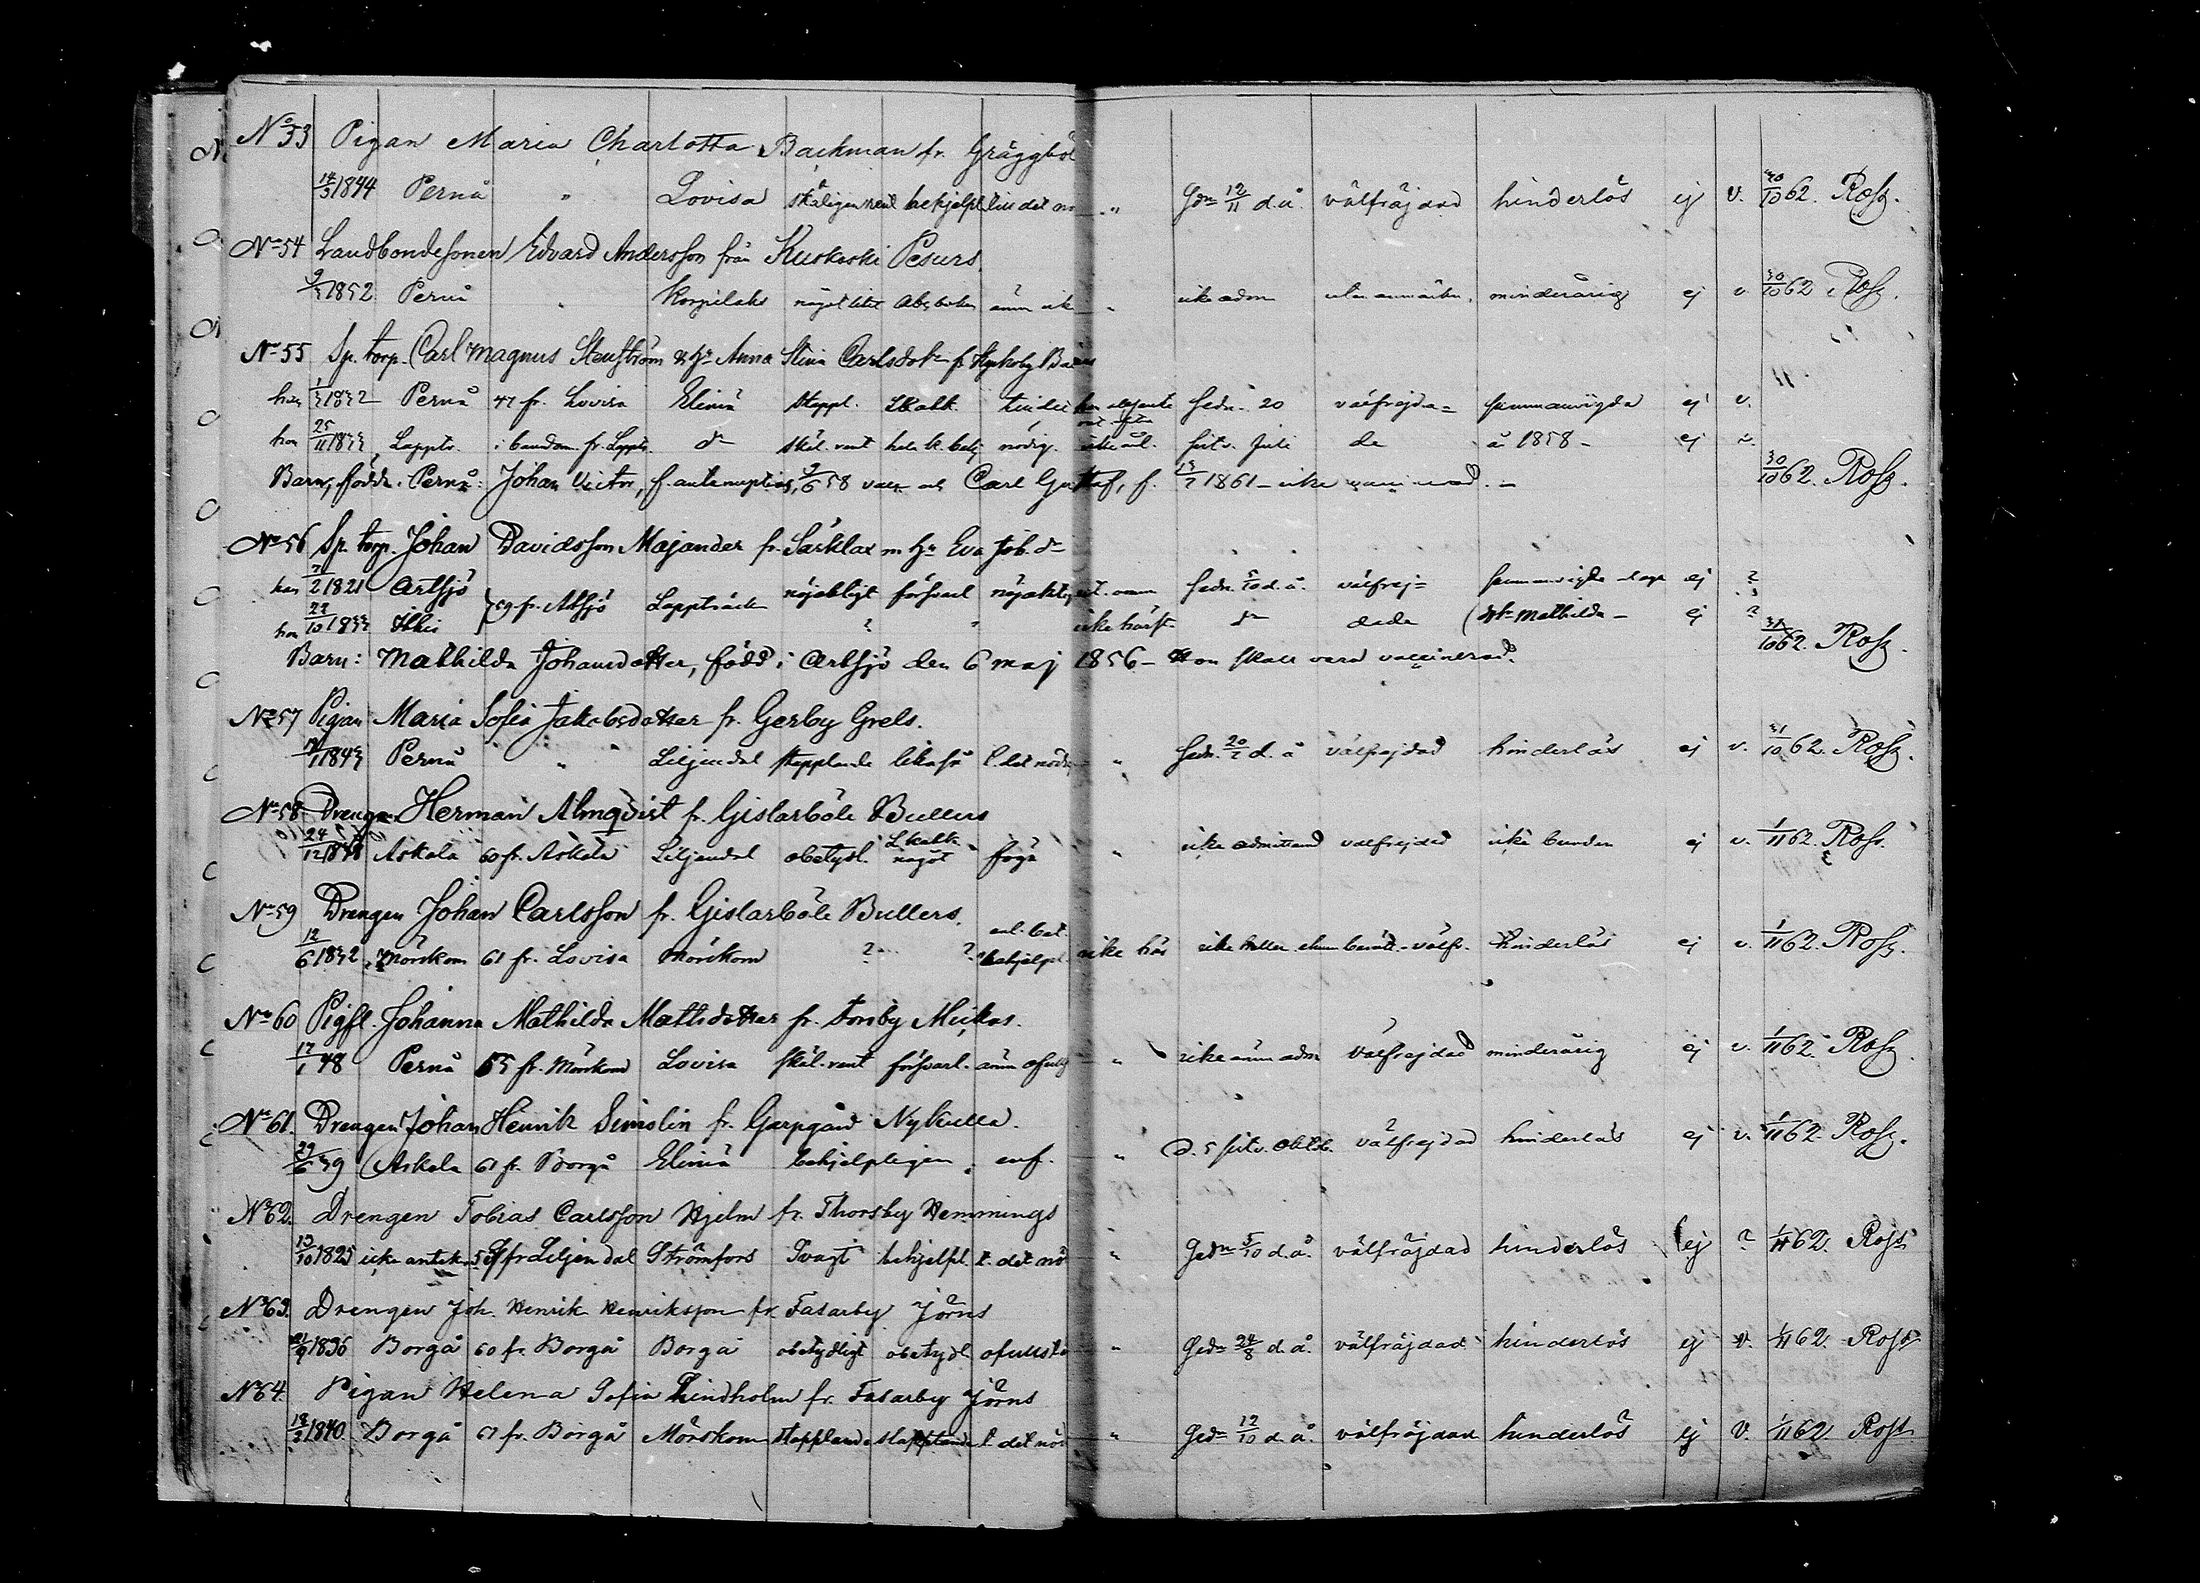 No 53 Pigan Maria Charlotta Backman fr. Gräggböl
14/3 1844 Pernå " Lovisa skäligen rent behjelpl. till det nö " Gdn 12/11 d.å. välfräjdad hinderlös ej v. 30/10 62. Rosz.
No 54 Landbondesonen Edvard Andersson från Kuskoski Pesurs.
9/3 1852 Pernå " Korpilaks något litet Abcboken ännu ick " icke adm utan anmärkn. minderårig ej v 30/10 62 Rosz.
No 55 Sp. torp. Carl Magnus Stenström & hr Anna Stina Carlsdotr fr
han 1832 Pernå 47 fr. Lovisa Elimä stappl. Lkatk. Gedn. 20 välfrejda= sammanvigda ej v.
hon 25/11 1833 Lappts. i barndom fr. Lappts. do skäl. rent hela k. behj nödig. sistv. Juli de år 1858 - ej
Barn, födde i Pernå: Johan Victor, f. antenuptias, 9/6 58 vacc. och Carl Gustaf, f. 13/7 1861 - icke vaccinerad. - 30/10 62. Rosz.
No 56 Sp. torp. Johan Davidsson Majander fr. Särklax m. hr Eva Job. dr
han 7/2 1821 Artsjö } 59 fr. Artsjö Lappträsk nöjaktigt försvarl nöjaktig Gedn. 5/10 d.å. välfrej= sammanvigde ej ?
hon 22/10 1833 Ithis ? " icke härst. do dade dtr Mathilda - ej ? 31/10 62. Rosz.
Barn: Mathilda Johansdotter, född i Artsjö den 6 maj 1856 - Hon skall vara vaccinerad.
No 57 Pigan Maria Sofia Jakobsdotter fr. Gerby Grels.
1843 Pernå " " Liljendal stapplande likaså t. det nödi " Gedn. 20/7 d.å välfrejdad hinderlös ej v. 31/10 62. Rosz.
No 58 Drengen Herman Almqvist fr. Gislarböle Bullers
24/12 1848 Askola 60 fr. Askola Liljendal obetydl. Lkatk. något föga " icke admitterad välfrejdad icke bunden ej v. 1/11 62. Rosz.
No 59 Drengen Johan Carlsson fr. Gislarböle Bullers.
12/6 1832 Mörskom 61 fr. Lovisa Mörskom ? ? enl. bet. behjelpl. icke här icke heller välfr. hinderlös ej v. 1/11 62. Rosz.
No 60 Pigfl. Johanna Mathilda Mattsdotter fr. Torsby Mickas.
17/1 48 Pernå 55 fr. Mörskom Lovisa skäl. rent försvarl. ännu ofullst " icke ännu adm välfrejdad minderårig ej v. 1/11 62. Rosz.
No 61. Drengen Johan Henrik Simolin fr. Garpgård Nykulla.
29/6 39 Askola 61 fr. Borgå Elimä behjelpligen " enf. " d. 5 sistv. Oktob. välfrejdad hinderlös ej v. 1/11 62. Rosz.
No 62. Drengen Tobias Carlsson Hjelm fr. Thorsby Hemmings
13/10 1825 icke anteckn 59 fr Liljendal Strömfors Svagt behjelpl. t. det nö " Gedn 5/10 d.å. välfräjdad hinderlös ej ? 1/11 62. Rosz
No 63. Drengen Joh. Henrik Henriksson fr. Fasarby Jörns
21/9 1836 Borgå 60 fr. Borgå Borgå obetydligt obetydl. ofullstä " Gedn 24/8 d.å. välfräjdad hinderlös ej v. 1/11 62. Rosz
No 64. Pigan Helena Sofia Lindholm fr. Fasarby Jörns
18/3 1840 Borgå 61 fr. Borgå Mörskom stapplande stapplande t. det nöd " Gedn 12/10 d.å. välfräjdad hinderlös ej v. 1/11 62 Rosz